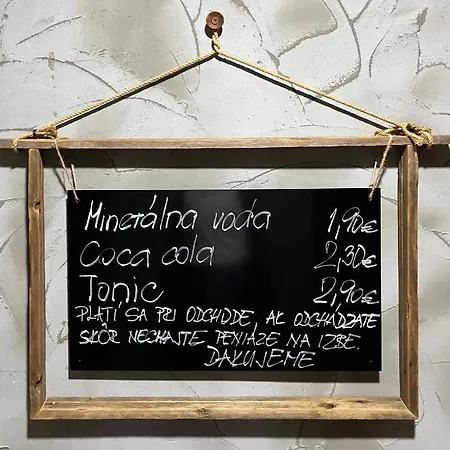 Minerálna voda 1,90€
Coca cola 2,30€
Tonic 2,90€
PLATÍ SA PRI ODCHODE, AK ODCHÁDZATE
SKÔR NECHAJTE PENIAZE NA IZBE.
ĎAKUJEME